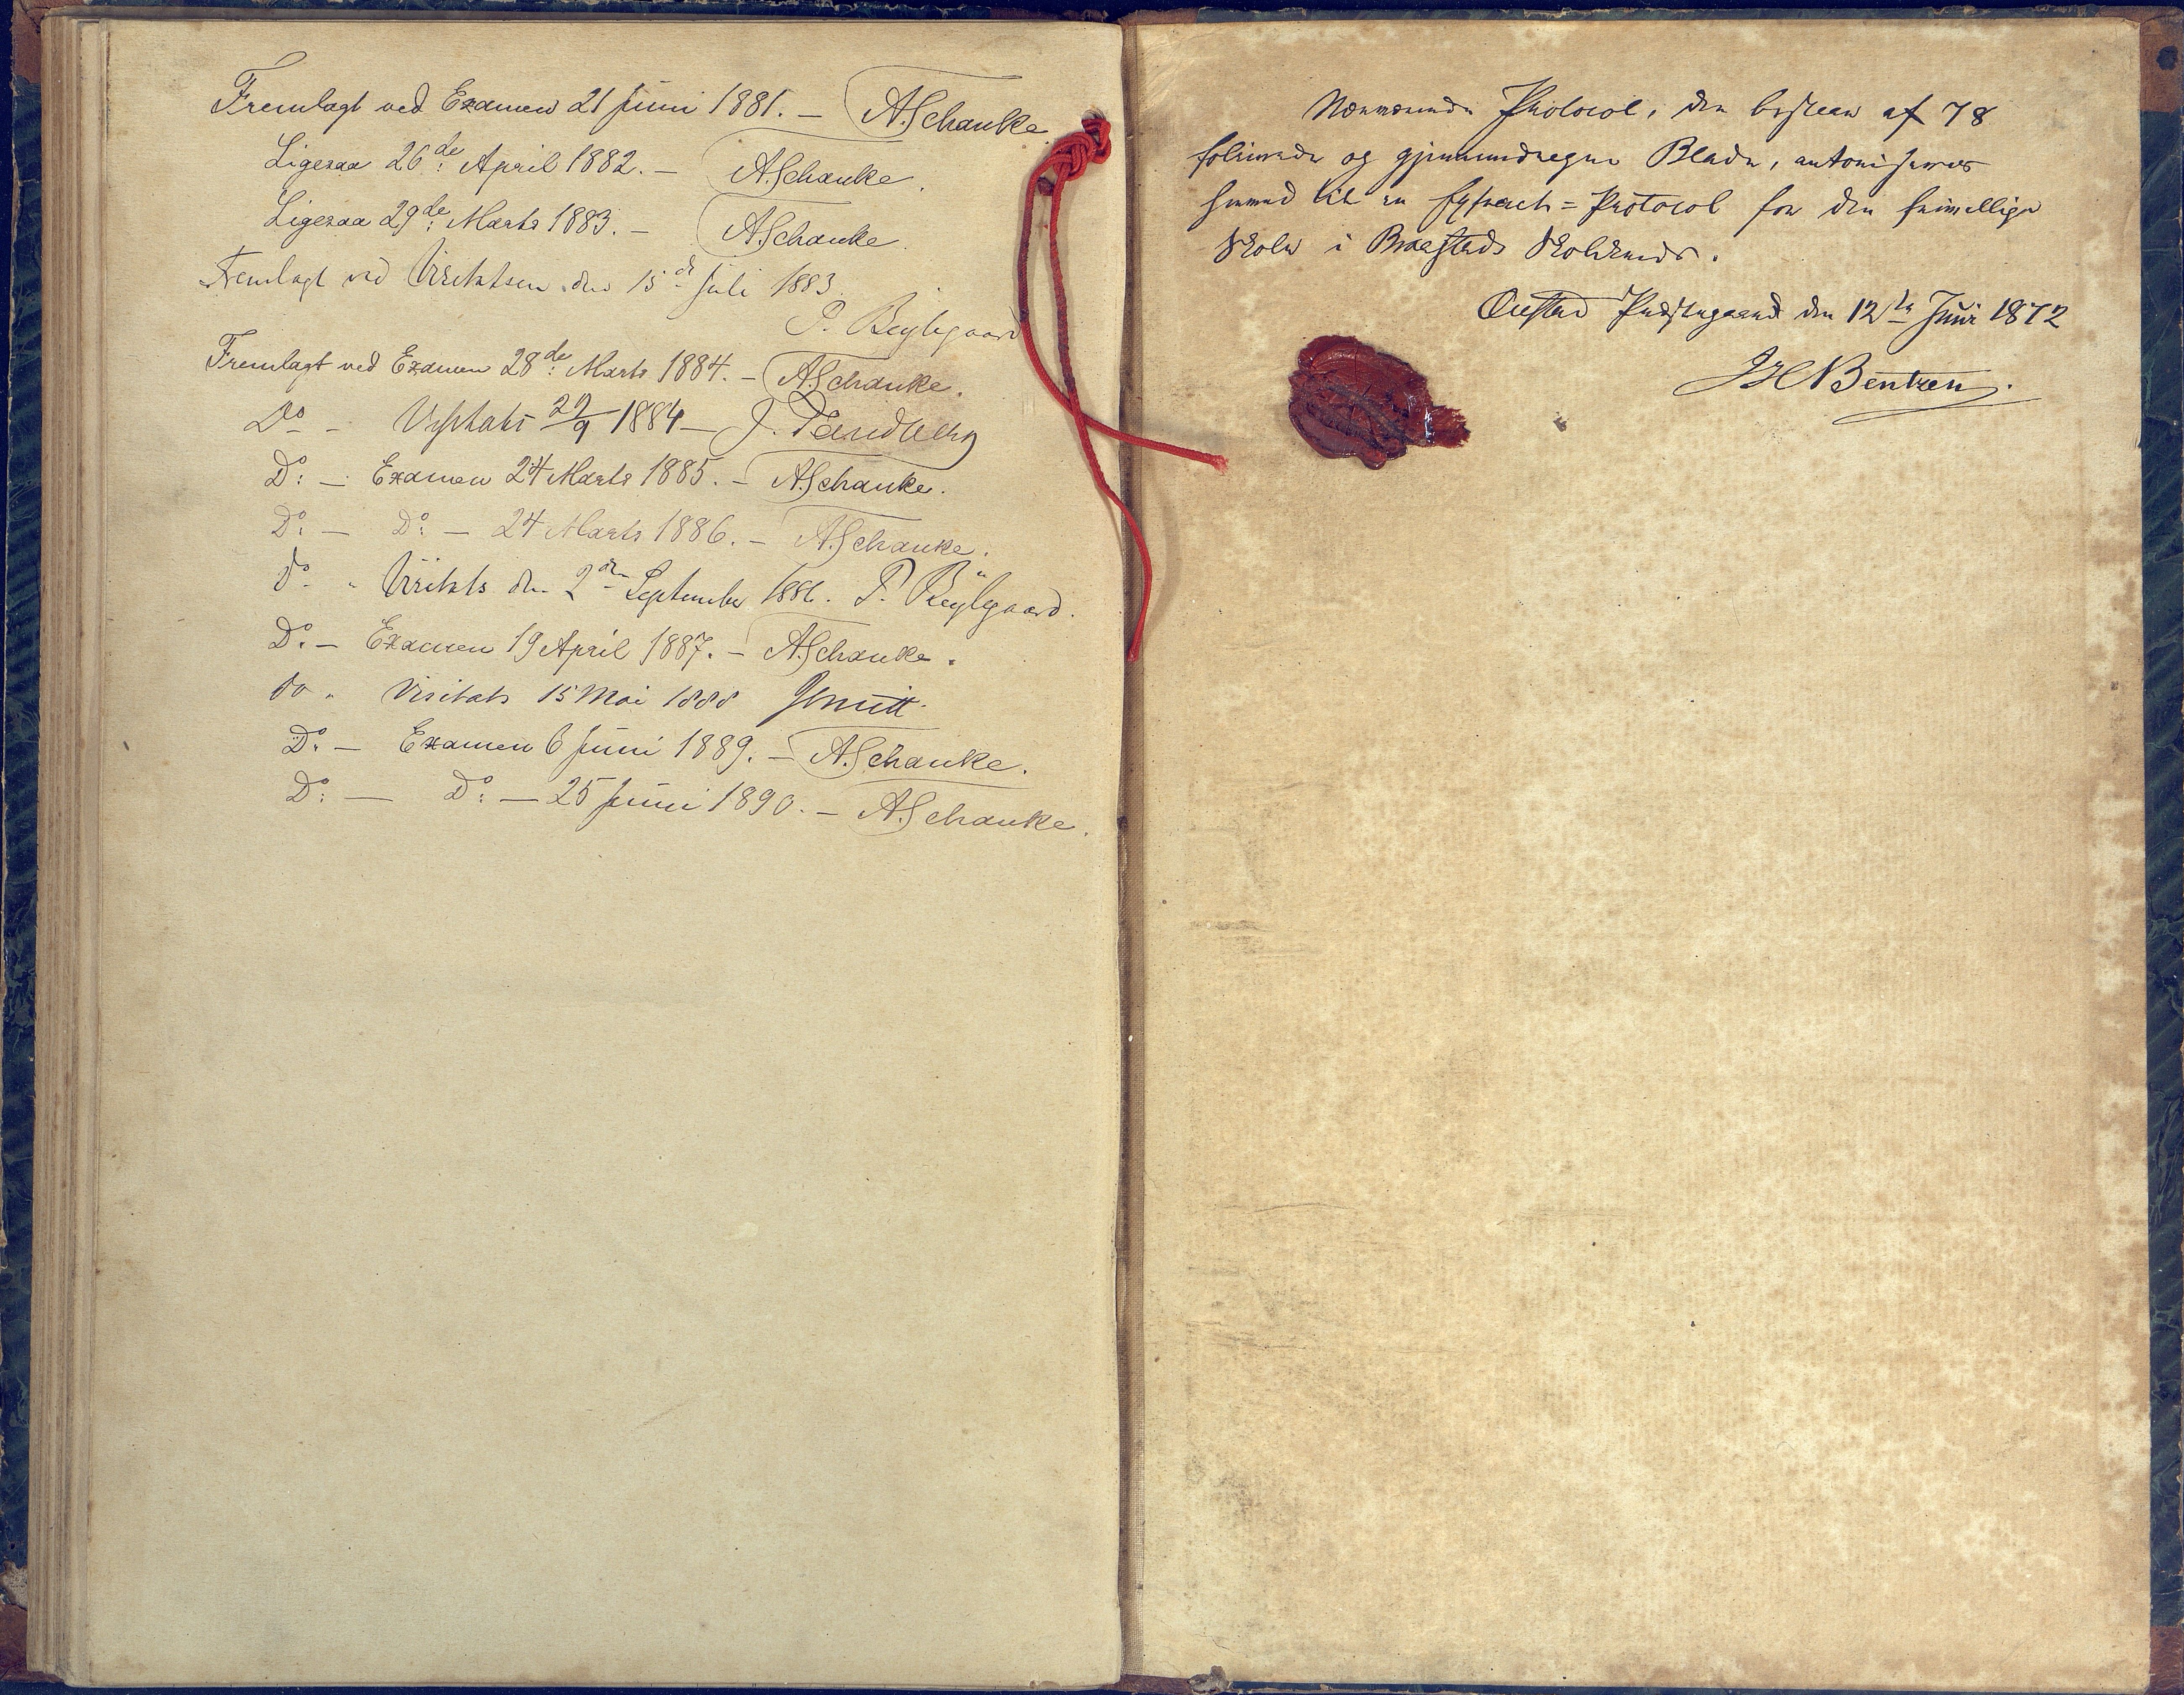 Fremlagt ved Examen 21 Juni 1881. — A. Schanke
Ligesaa 26de: April 1882. — A. Schanke.
Ligesaa 29de: Marts 1883. — A. Schanke.
Fremlagt ved Visitatsen den 15de Juli 1883
P. Beylegaard
Fremlagt ved Examen 28de: Marts 1884. — A. Schanke.
Do — 29/9 1884 — J.
Do: — Examen 24 Marts 1885. — A. Schanke.
Do: — Do: — 24 Marts 1886. — A. Schanke.
do " Visitats den 2den September 1886. P. Beylegaard.
Do. — Examen 19 April 1887. — A. Schanke.
do " Visitats 15 Mai 1888 Smitt.
Do: — Examen 6 Juni 1889. — A. Schanke.
Do: — Do: — 25 Juni 1890. — A. Schanke.
Nærværende Protocol, der bestaar af 78
folierede og gjennemdragne Blade, autoriseres
herved til en = Protocol for den frivillige
Skole i Skolekreds.
Præstegaard den 12te Juni 1872
JHCBentzen.